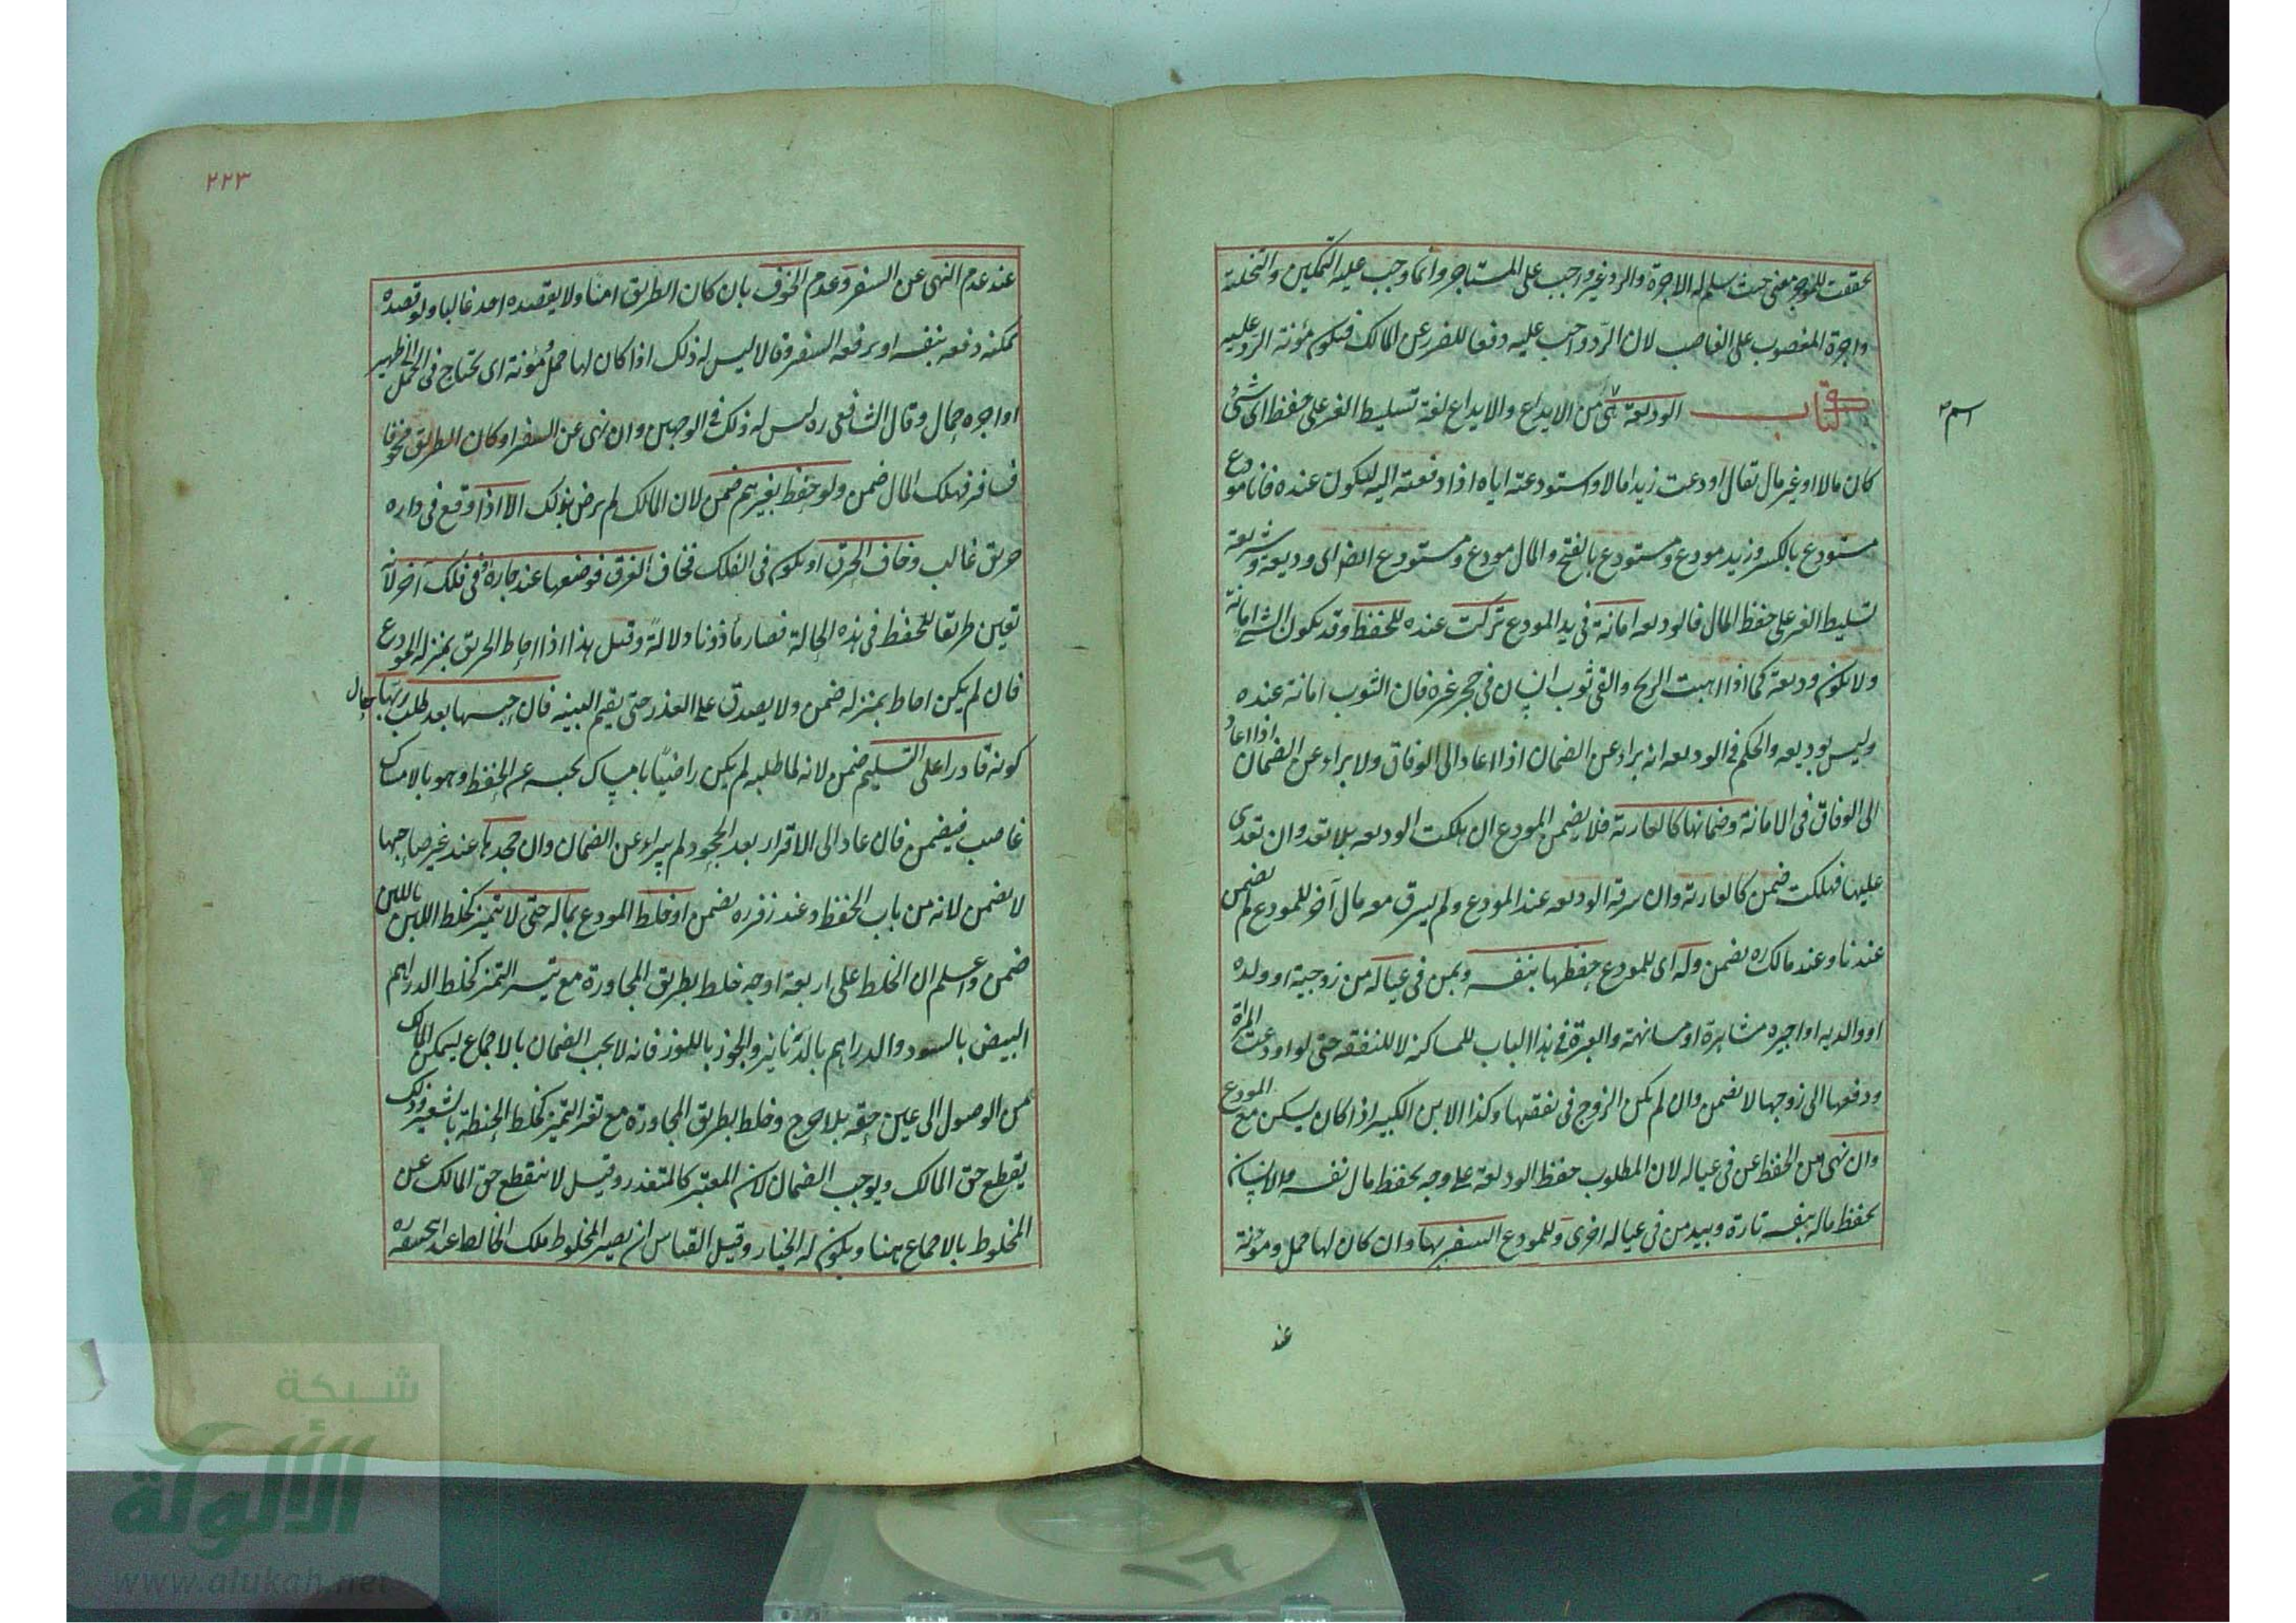 تحققت للموجر معنى حيث سلم له الاجرة والرد غير واجب على المستاجر وانما وجب عليه التمكين والتخلية
واجرة المغصوب على الغاصب لان الرد واجب عليه دفعا للضرر عن المالك فيكون مؤنة الرد عليه
كتاب الوديعة هى من الايداع والايداع لغة تسليط الغير على حفظ اى شئ
اسم
كان مالا او غير مال يقال اودعت زيدا مالا واستودعته اياه اذا دفعته اليه ليكون عنده فانا مودع
مستودع بالكسر وزيد مودع ومستودع بالفتح والمال مودع ومستودع ايضا اى وديعة وشريعة
تسليط الغير على حفظ المال فالوديعه امانة فى يد المودع تركت عنده للحفظ وقد يكون الشئ امانة
ولا يكون وديعة كما اذا هبت الريح والقى ثوب انسان فى حجر غيره فان الثوب امانة عنده
وليس بوديعه والحكم فى الوديعه انه يبراء عن الضمان اذا عاد الى الوفاق ولا يبراء عن الضمان اذا عاد
الى الوفاق فى الامانة وضمانها كالعارية فلا يضمن المودع ان هلكت الوديعه بلا تعد وان تعدى
عليها فهلكت ضمن كالعارية وان سرقة الوديعه عند المودع ولم يسرق معه مال آخر للمودع لم يضمن
عندنا وعند مالك ره يضمن وله اى للمودع حفظها بنفسه وبمن فى عياله من زوجية او ولده
او والديه او اجيره مشاهرة او مسانهة والعبرة فى هذا الباب للمساكنه لا للنفقه حتى لو اودعت المراة
ودفعها الى زوجها لا تضمن وان لم يكن الزوج فى نفقتها وكذا الابن الكبير اذا كان يسكن مع المودع
وان نهى عن الحفظ عن فى عياله لان المطلوب حفظ الوديعة على وجه يحفظ مال نفسه والانسان
يحفظ ماله بنفسه تارة وبيد من فى عياله اخرى وللمودع السفر بها وان كان لها حمل ومؤنة
عند
٢٢٣
عند عدم النهى عن السفر وعدم الخوف بان كان الطريق امنا ولا يقصده احد غالبا ولو قصده
يمكنه دفعه بنفسه او برفقه السفر وقالا ليس له ذلك اذا كان لها حمل ومؤنة اى يحتاج فى الحمل الى ظهير
او اجره حمال وقال الشافعى ره ليس له ذلك فى الوجهين وان نهى عن السفر او كان الطريق مخوفا
فسافر فهلك المال ضمن ولو حفظ بغيرهم ضمن لان المالك لم يرض بذلك الا اذا وقع فى داره
حريق غالب وخاف الحرق او يكون فى الفلك فخاف الغرق فوضعها عند جاره او فى فلك آخر لانه
تعين طريقا للحفظ فى هذه الحالة فصار مأذونا دلالة وقيل هذا اذا احاط الحريق بمنزله المودع
فان لم يكن احاط بمنزله ضمن ولا يصدق على العذر حتى يقيم البينه فان حبسها بعد طلب ربها حال
كونه قادرا على التسليم ضمن لانه لما طلبه لم يكن راضيا بامساك بحبسه عم الحفظ وهو بالامساك
غاصب فيضمن فان عاد الى الاقرار بعد الجحود لم يبراء عن الضمان وان جحدها عند غير صاحبها
لا يضمن لانه من باب الحفظ وعند زفر ره يضمن او خلط المودع بماله حتى لا تتميز كخلط اللبن باللبن
ضمن واعلم ان الخلط على اربعة اوجه خلط بطريق المجاورة مع تيسر التميز كخلط الدراهم
البيض بالسود والدراهم بالدنانير والجوز باللوز فانه لا يجب الضمان بالاجماع ليمكن المالك
من الوصول الى عين حقه بلا حرج وخلط بطريق المجاورة مع تعسر التميز كخلط الحنطة بالشعير وذلك
يقطع حق المالك ويوجب الضمان لان المعتبر كالمتعذر وقيل لا ينقطع حق المالك عن
المخلوط بالاجماع ههنا ويكون له الخيار وقيل القياس ان يصير المخلوط ملك الخالط عند ابيحنيفه ره
شبكة
الألوكة
www.alukah.net